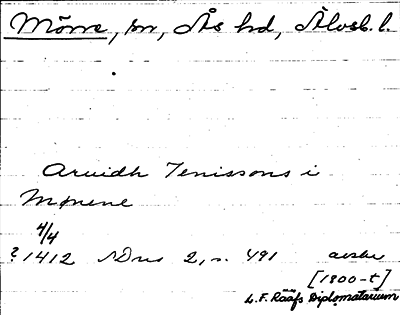 Mörne, sn, Ås hd, Älvsb. l.
Arvidh Jenissons i
Mørene
4/4
? 1412 SDns 2, s. 491 avskr
[1800-t]
L.F. Rääfs Diplomatarium